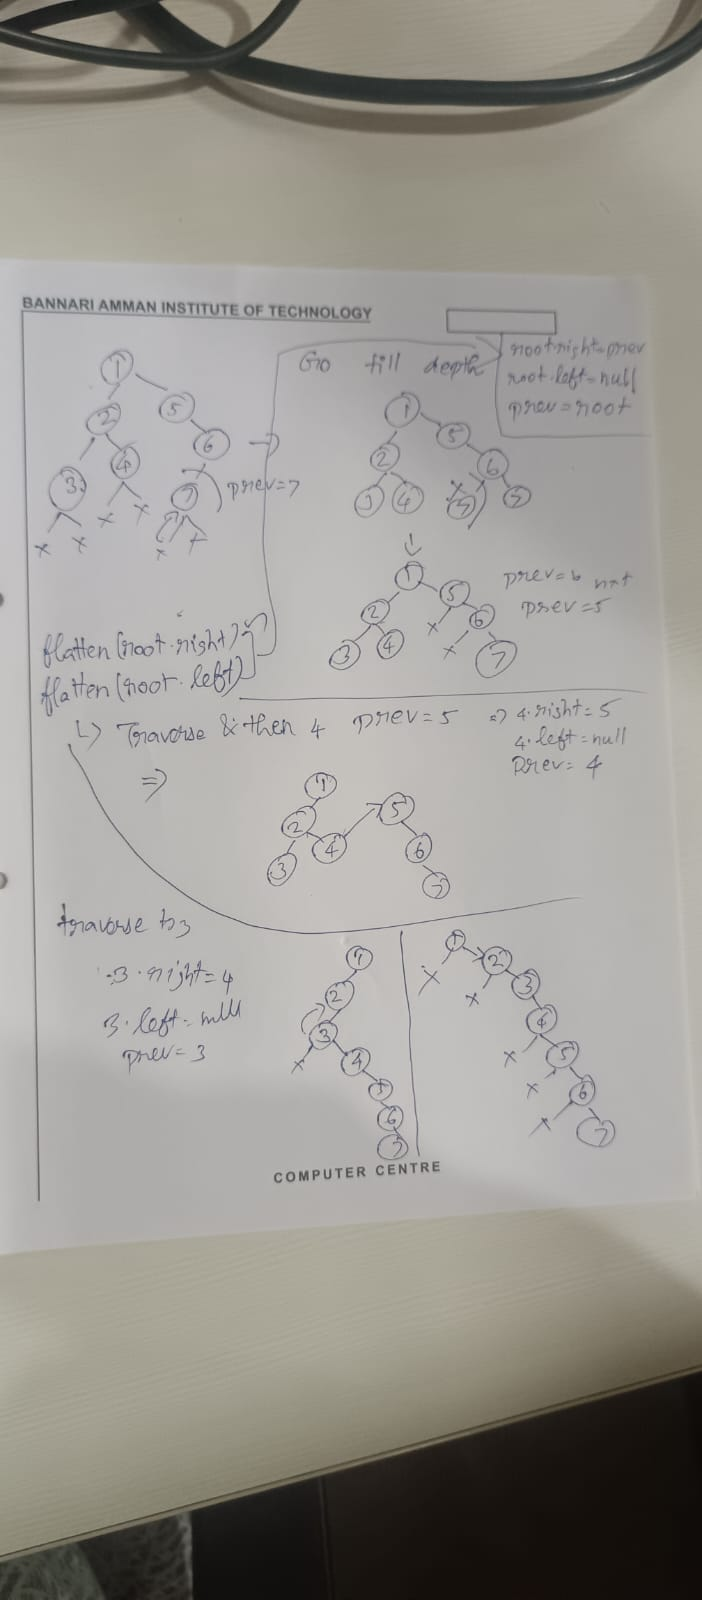 BANNARI AMMAN INSTITUTE OF TECHNOLOGY
1
2 5
3 4 6
7 prev=7
x x x x x x
Go till depth
root.right=prev
root.left=null
prev=root
1
2 5
3 4 6
7 7
1
2 5
3 4 x 6
x 7
prev=6 nxt
prev=5
flatten(root.right)
flatten(root.left)
↳ Traverse & then 4 prev=5 => 4.right=5
4.left=null
Prev=4
=>
1
2 5
3 4 6
7
traverse to 3
3.right=4
3.left=null
prev=3
1
2
3
x 4
5
6
7
1
x 2
x 3
4
x 5
x 6
x 7
COMPUTER CENTRE